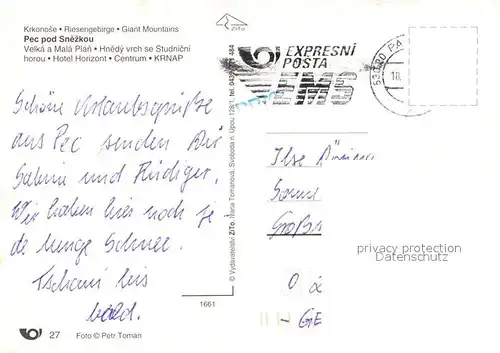 Krkonoše • Riesengebirge • Giant Mountains
Pec pod Sněžkou
Velká a Malá Pláň • Hnědý vrch se Studniční
horou • Hotel Horizont • Centrum • KRNAP
ZiTo
EXPRESNÍ
POŠTA
EMS
530 20 PA
18.
© Vydavatelství ZiTo, Hana Tomanová, Svoboda n. Úpou 126/1, tel. 0439
484
Schöne Urlaubsgrüße
aus Pec senden Dir
Sabine und Rüdiger.
Wir haben hier noch je
de Menge Schnee.
Tschaui bis
bald.
Ilse
Großs
privacy protection
Datenschutz
- GE
1661
27 Foto © Petr Toman